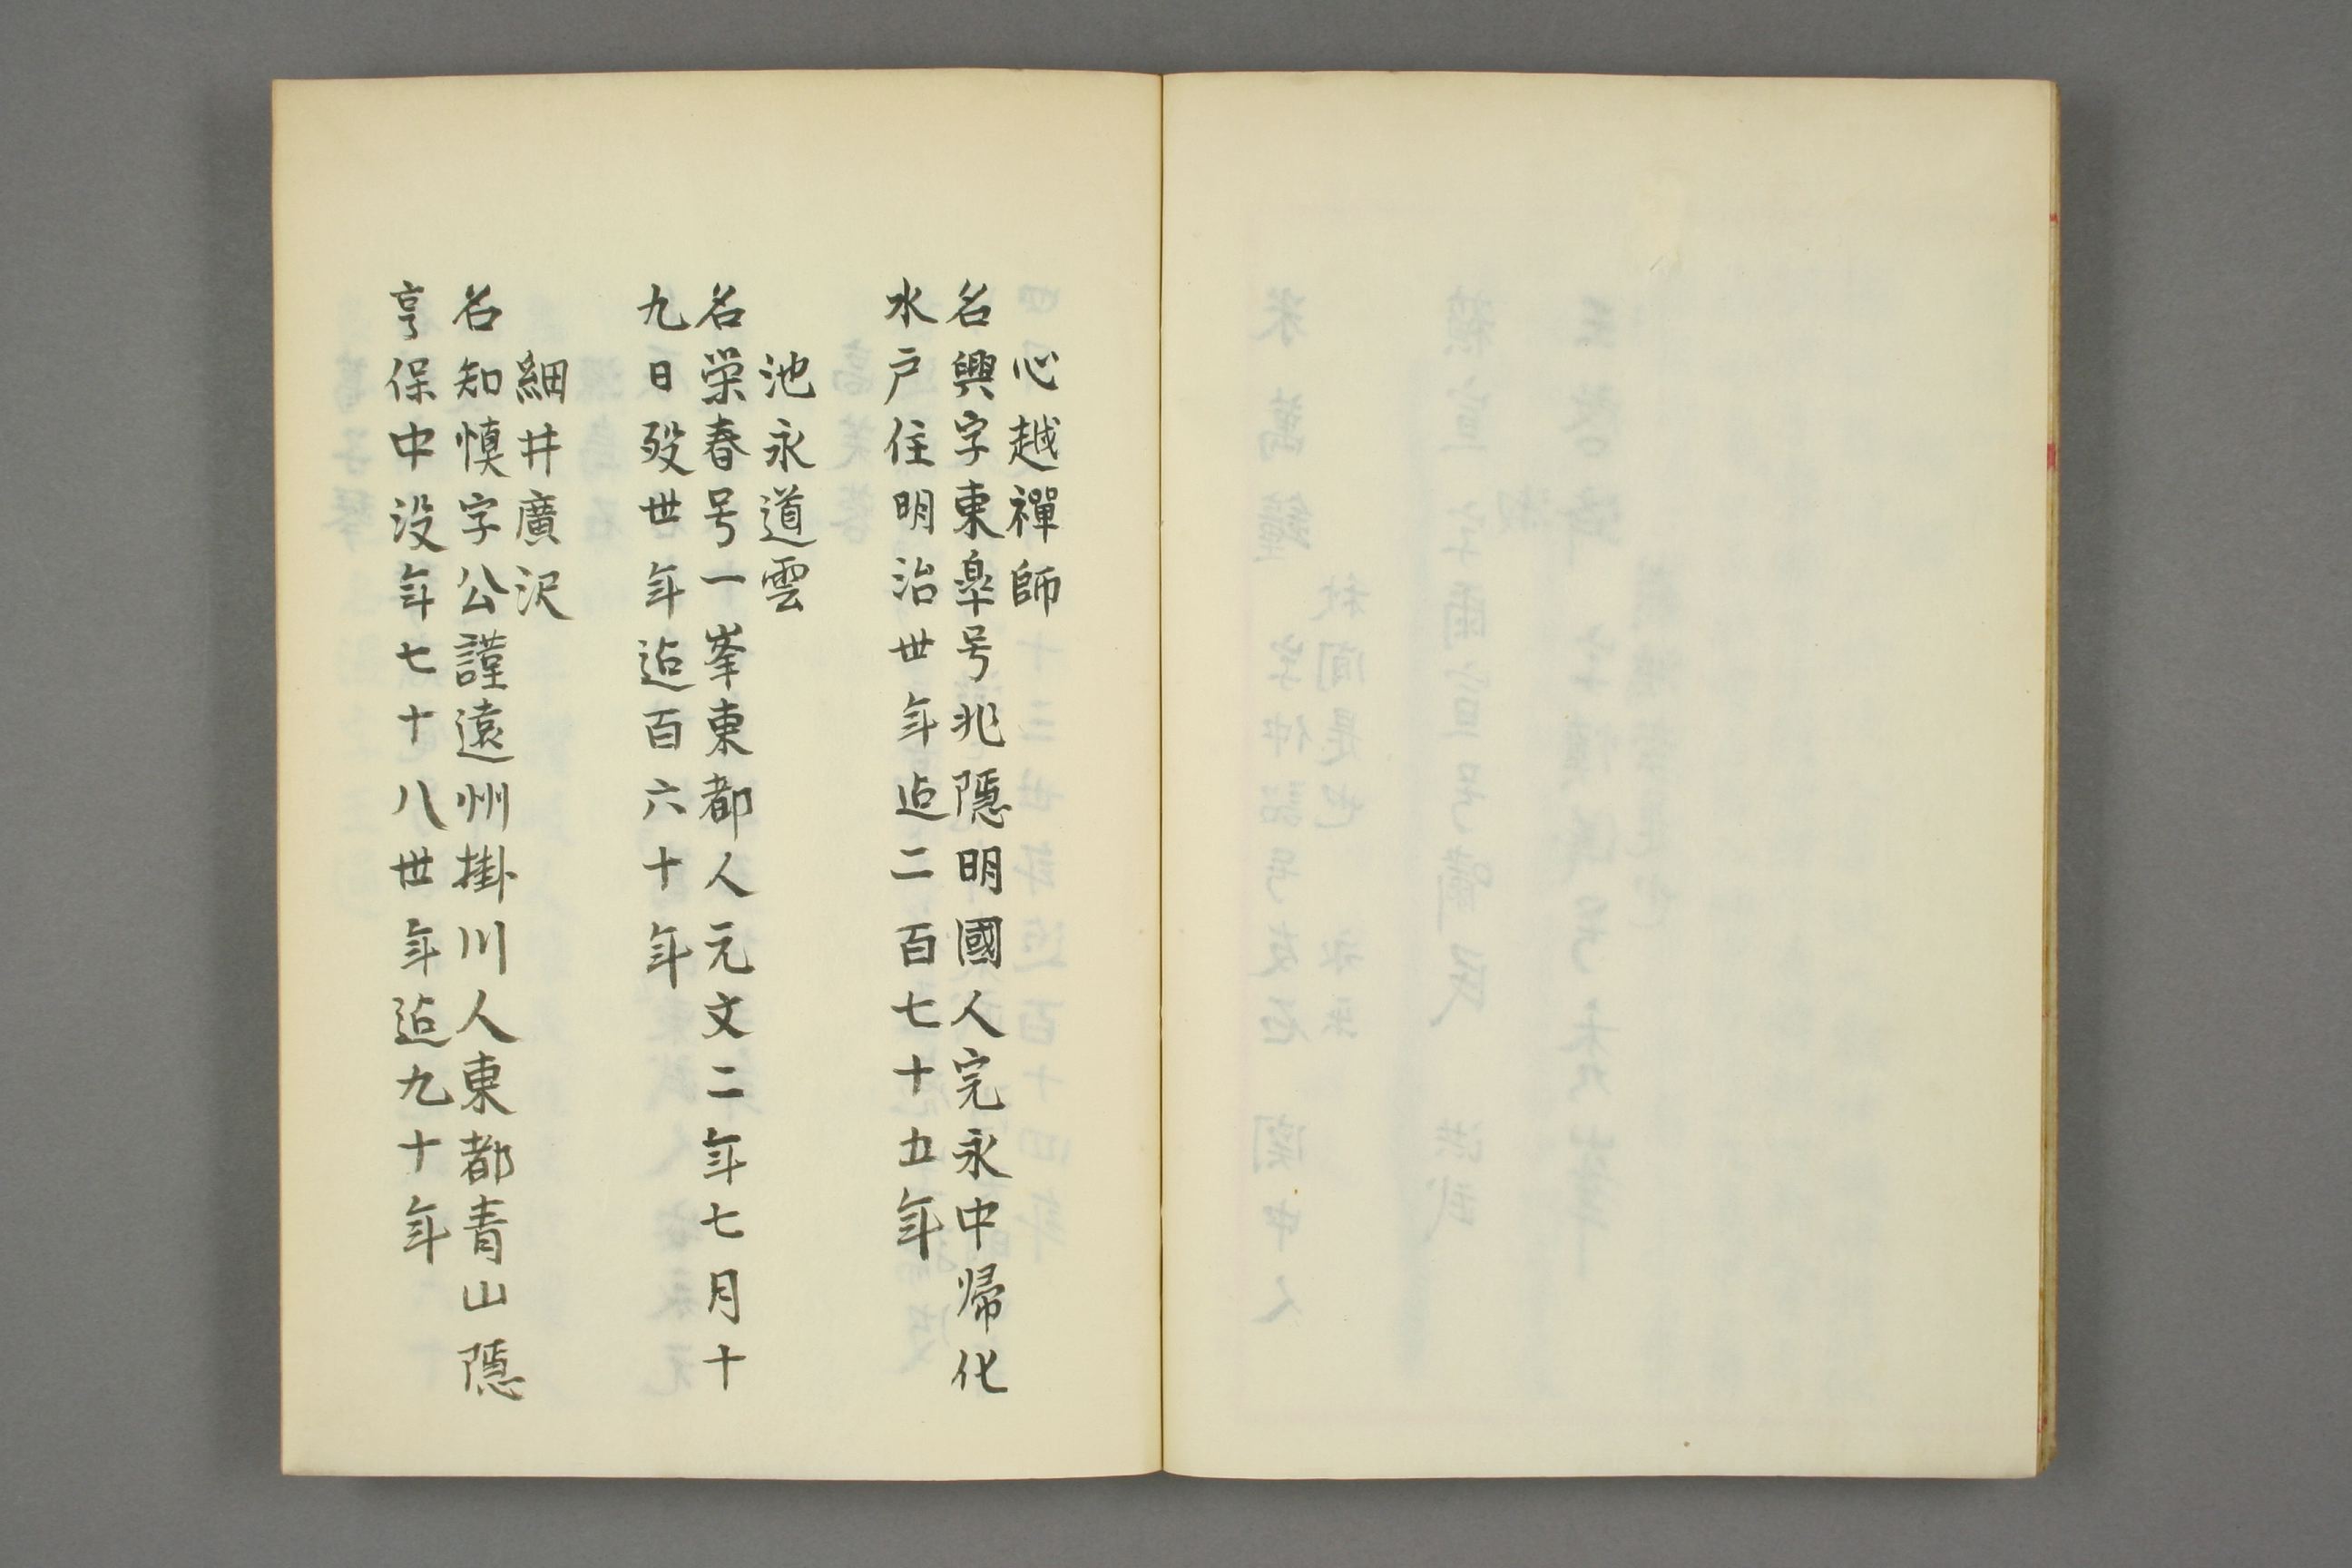 心越禪師
名興字東皐号兆隱明國人完永中帰化
水戸住明治丗年迠二百七十五年
池永道雲
名栄春号一峯東都人元文二年七月十
九日歿丗年迠百六十年
細井廣沢
名知慎字公謹遠州掛川人東都青山隱
亨保中没年七十八丗年迠九十年